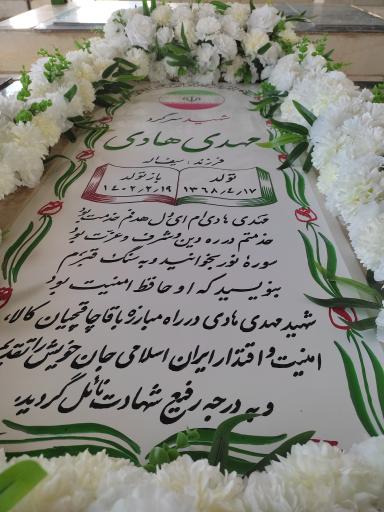 شهید سرگرد
مهدی هادی
فرزند: سیف‌اله
تولد
بازتولد
۱۳۶۸/۰۴/۱۷
۱۴۰۲/۰۲/۱۹
مهدی هادی‌ام ای ال هدفم خدمت بود
خدمتم در ره دین و شرف و عزت بود
سورهٔ نور بخوانید و به سنگ قبرم
بنویسید که او حافظ امنیت بود
شهید مهدی هادی در راه مبارزه با قاچاقچیان کالا،
امنیت و اقتدار ایران اسلامی جان خویش را تقدیم
و به درجه رفیع شهادت نائل گردید.